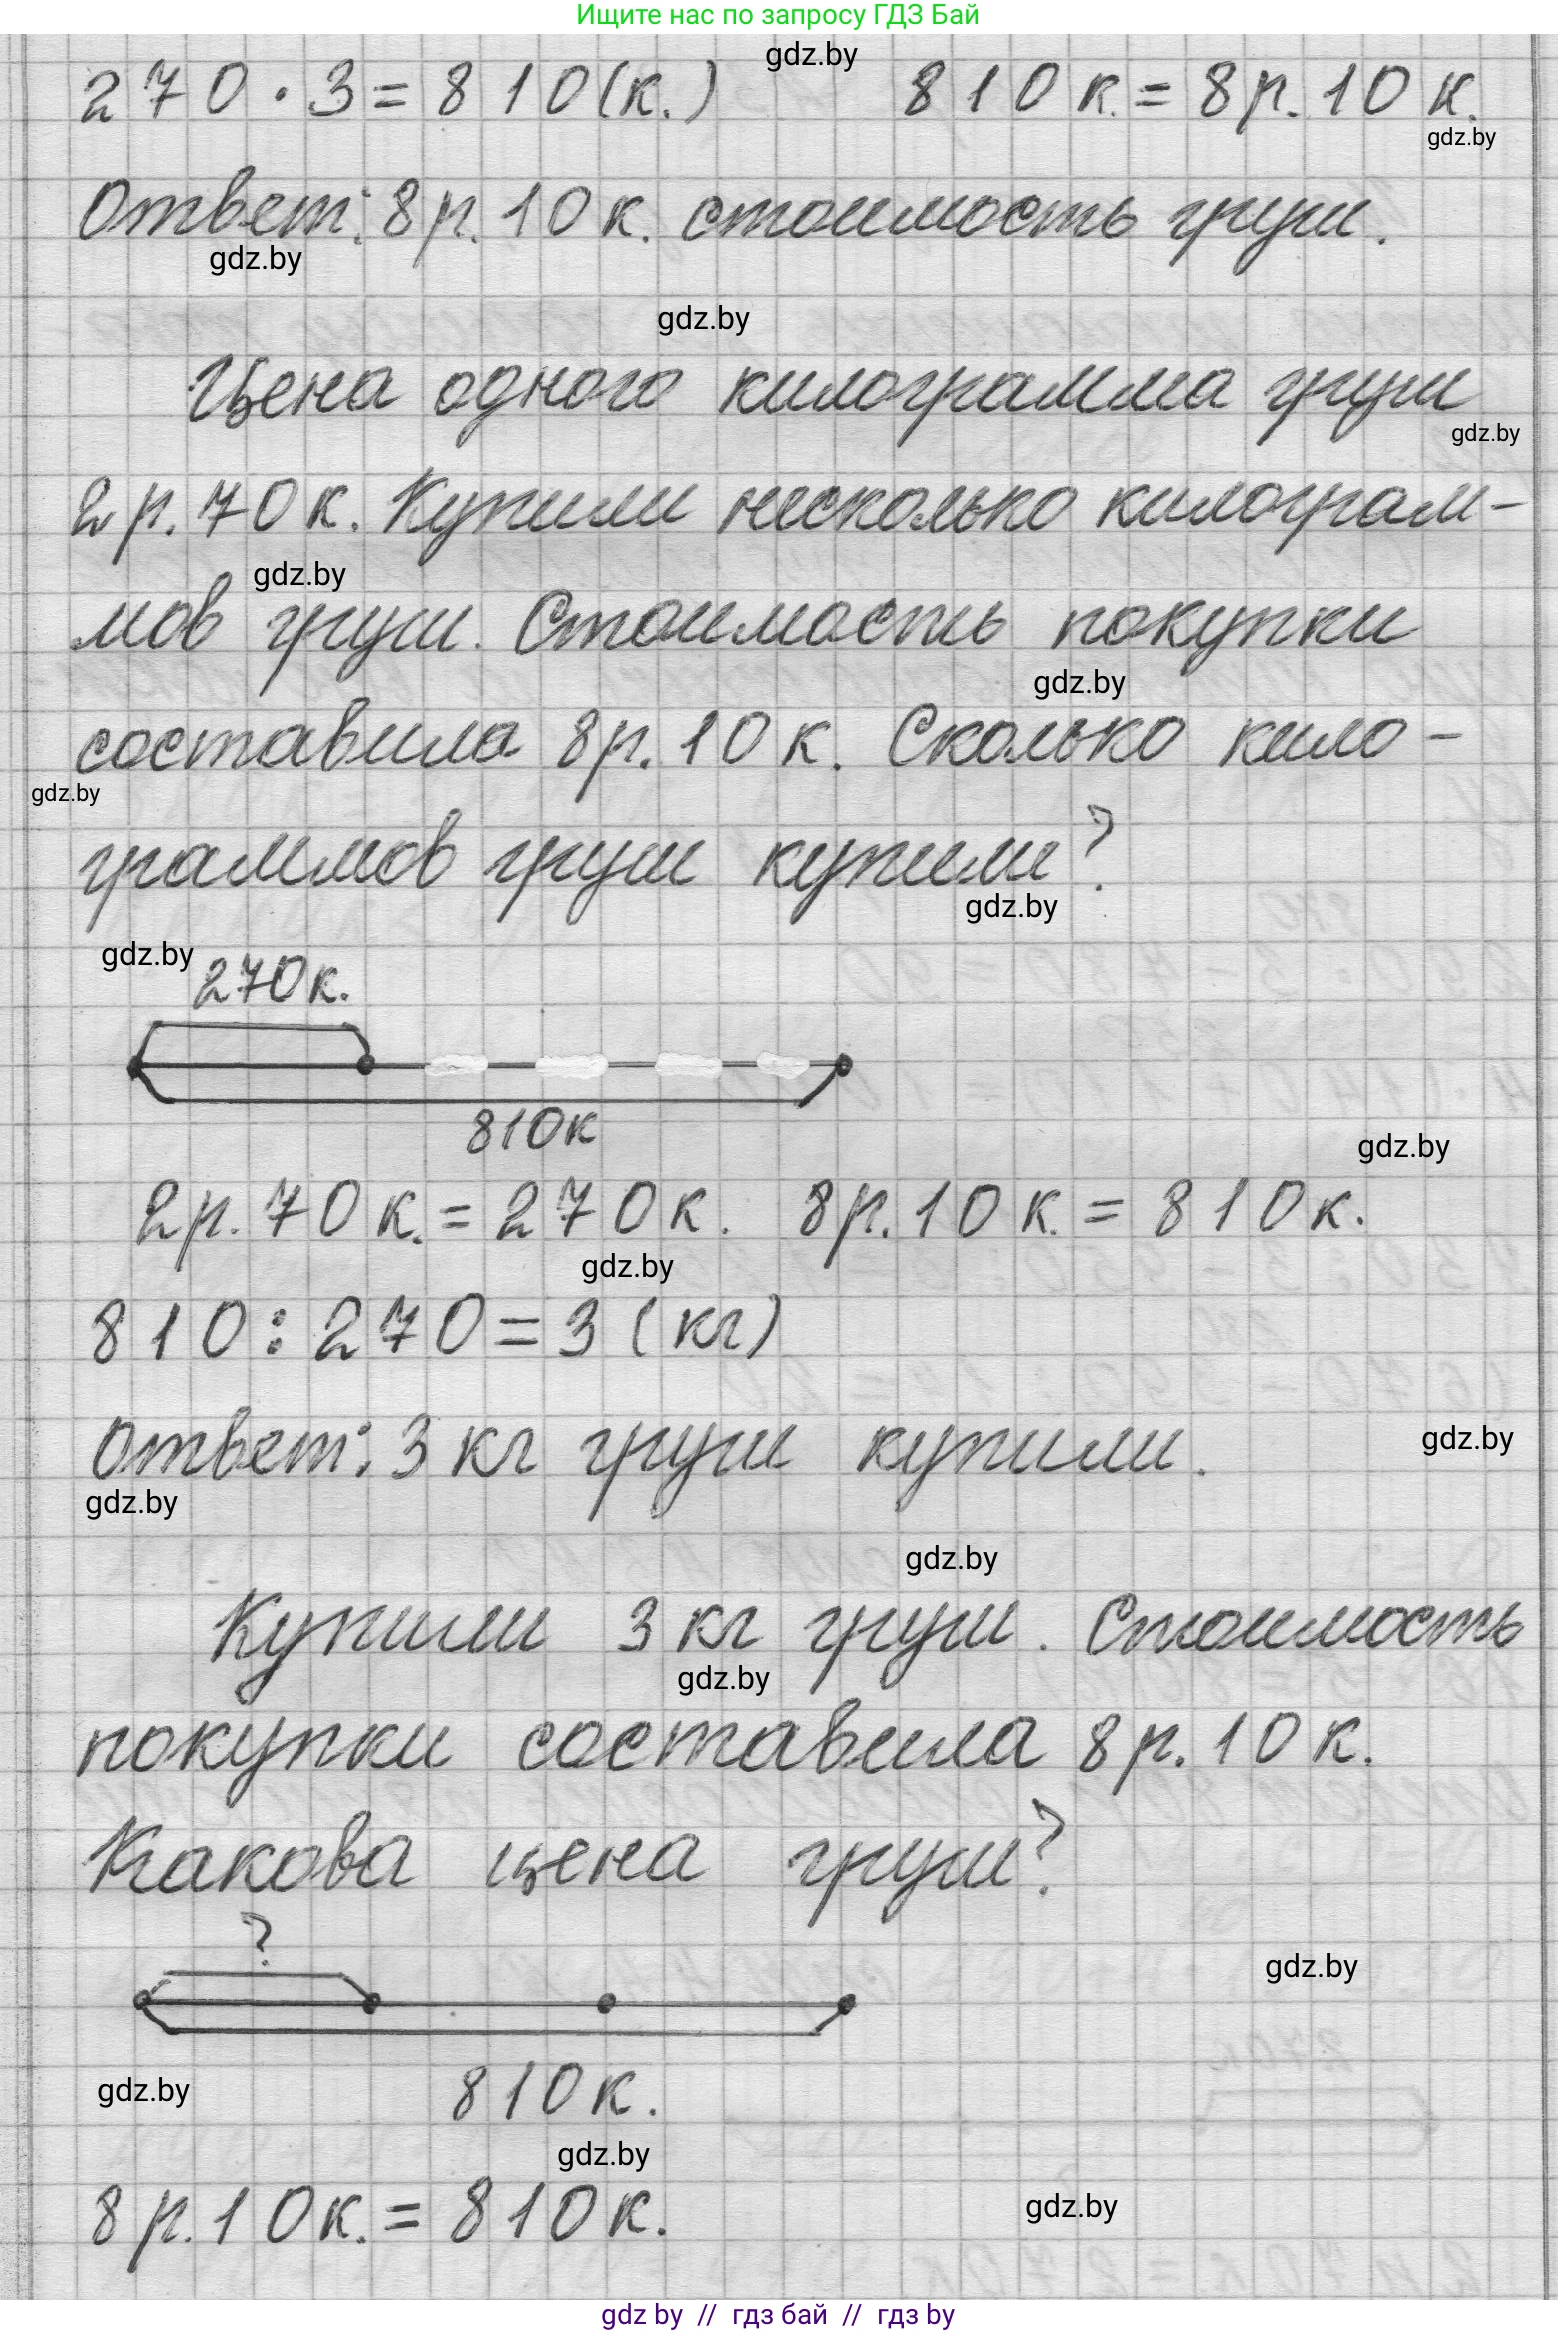 Ищите нас по запросу ГДЗ Бай
gdz.by
270 · 3 = 810 (к.) 810 к. = 8 р. 10 к.
gdz.by
Ответ: 8 р. 10 к. стоимость груш.
gdz.by
gdz.by
Цена одного килограмма груш
gdz.by
2 р. 70 к. Купили несколько килограм-
gdz.by
мов груш. Стоимость покупки
gdz.by
составила 8 р. 10 к. Сколько кило-
gdz.by
граммов груш купили?
gdz.by
gdz.by
270 к.
810к
gdz.by
2 р. 70 к. = 270 к. 8 р. 10 к. = 810 к.
gdz.by
810 : 270 = 3 (кг)
Ответ: 3 кг груш купили.
gdz.by
gdz.by
gdz.by
Купили 3 кг груш. Стоимость
gdz.by
покупки составила 8 р. 10 к.
Какова цена груш?
?
gdz.by
810 к.
gdz.by
gdz.by
8 р. 10 к. = 810 к.
gdz.by
gdz by // гдз бай // гдз by